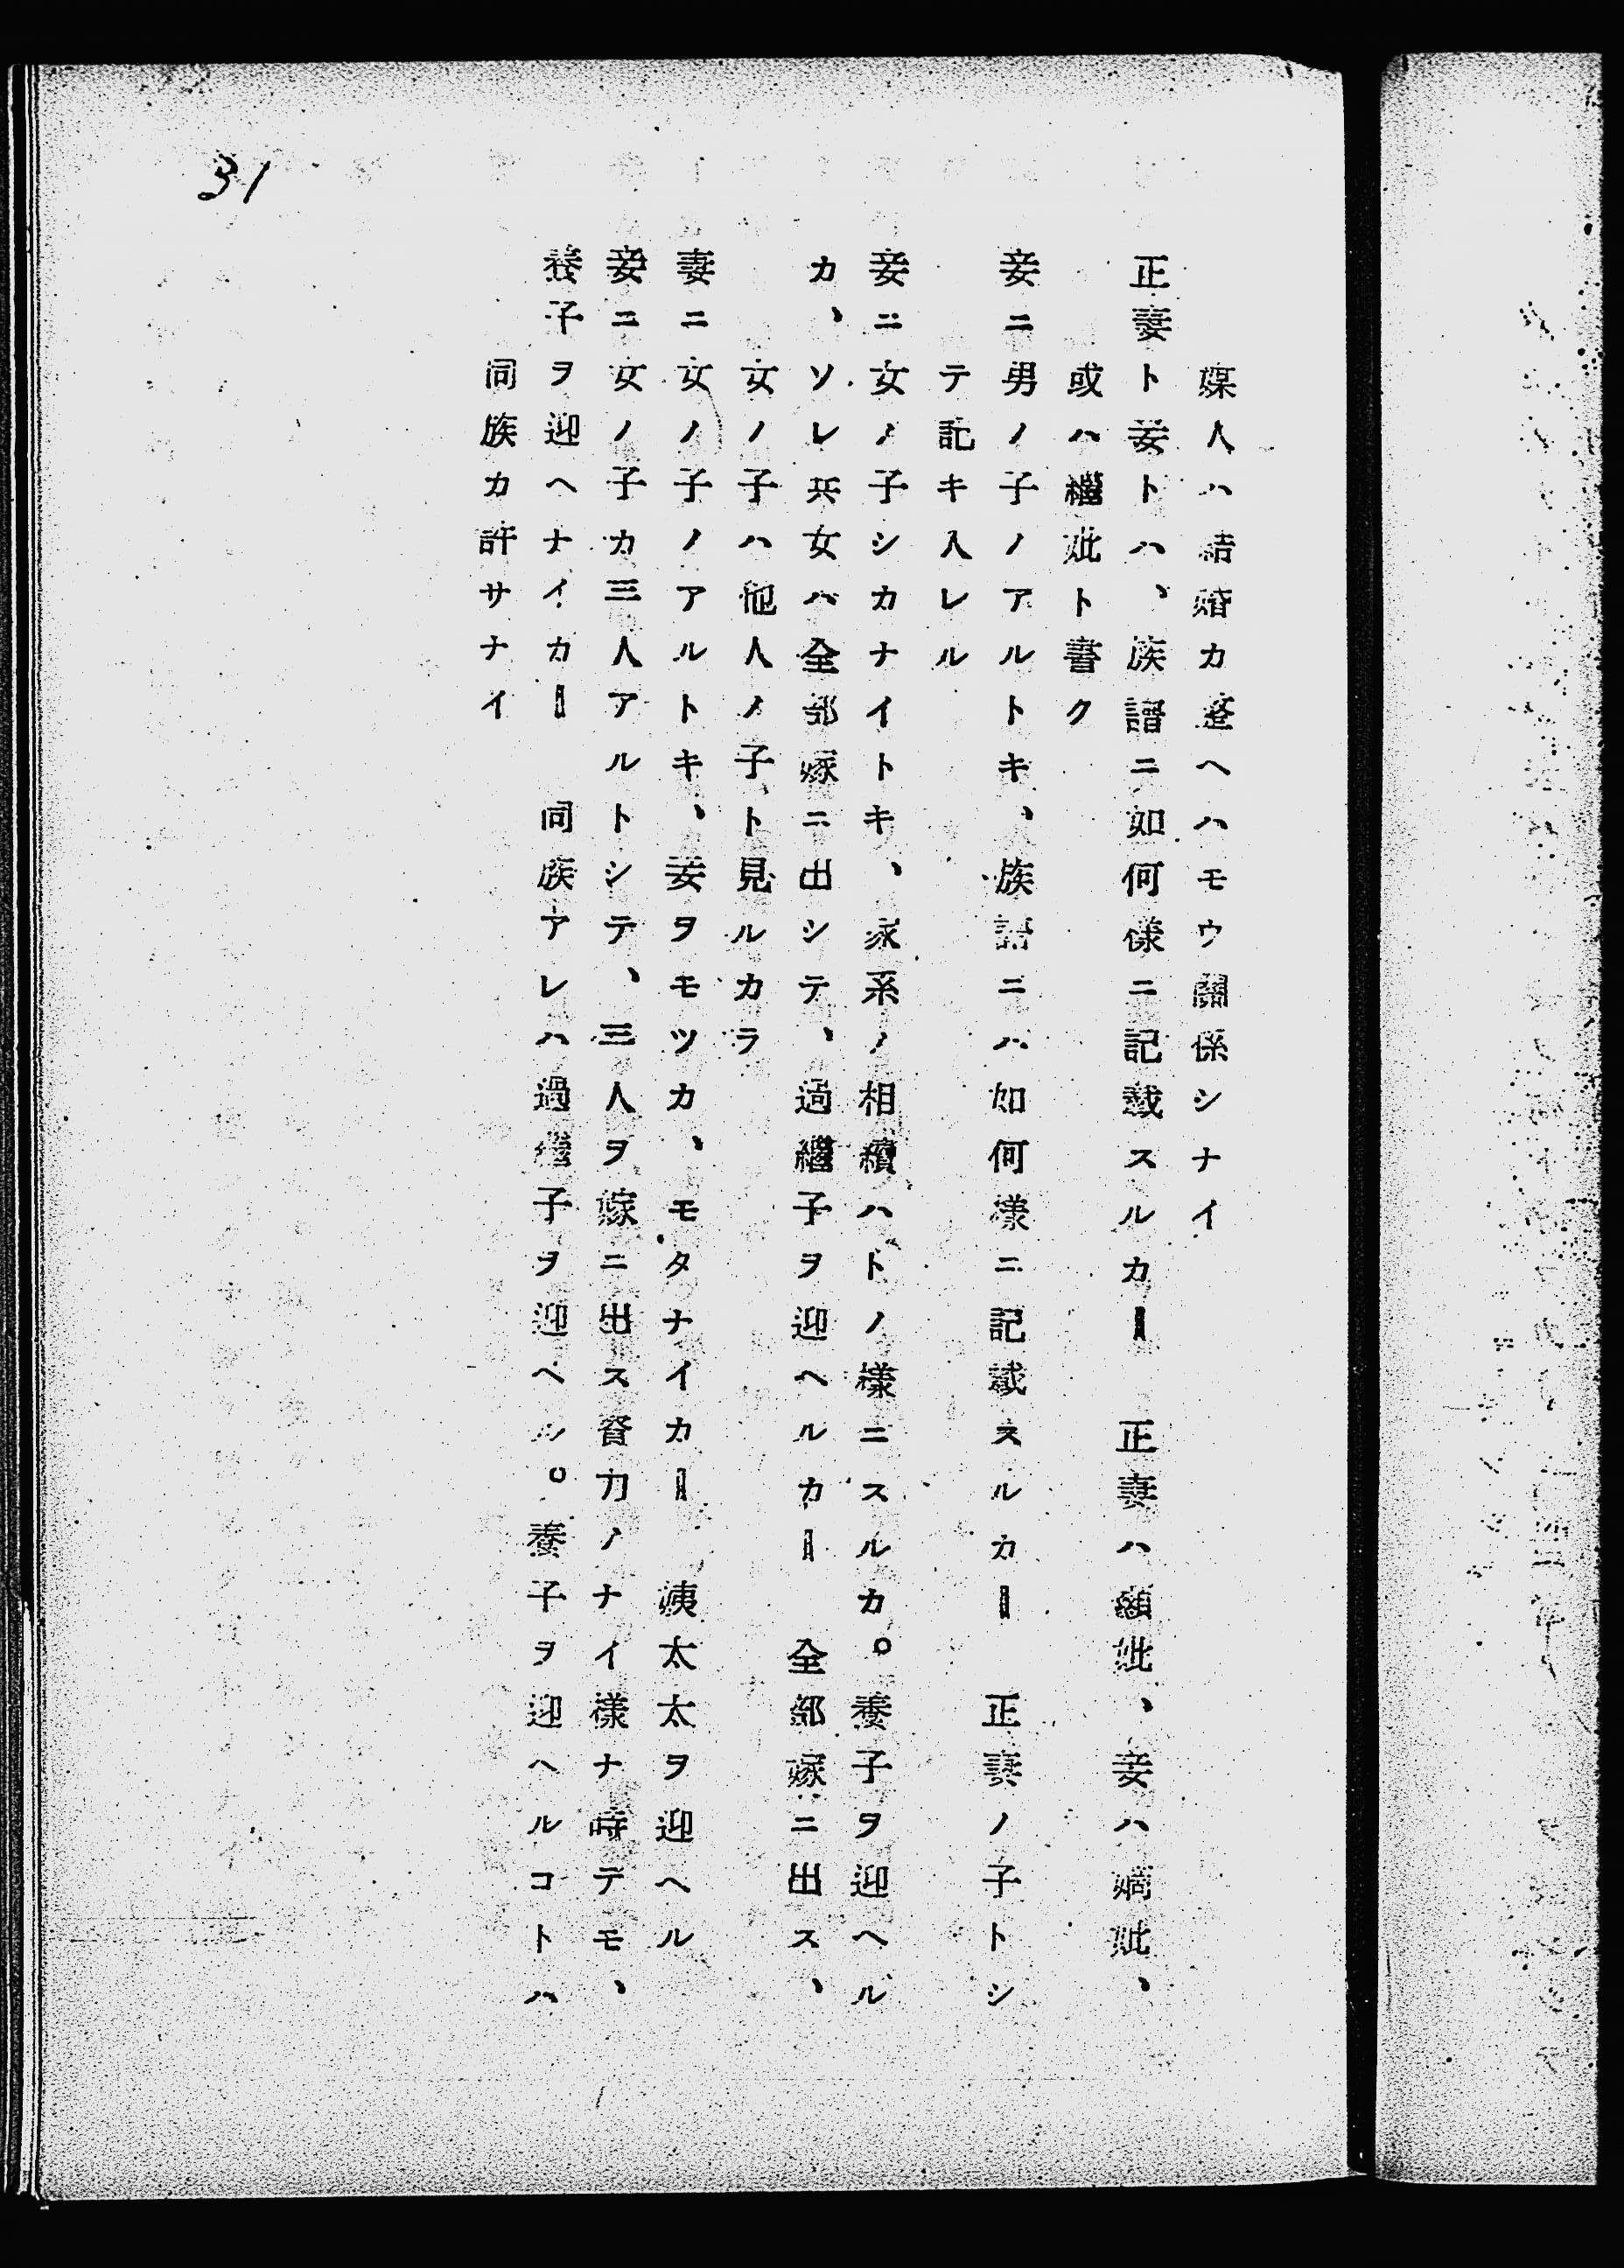 媒人ハ結婚カ整ヘハモウ關係シナイ
正妻ト妾トハ、族譜ニ如何樣ニ記載スルカー　正妻ハ顯妣、妾ハ嫡妣、
或ハ繼妣ト書ク
妾ニ男ノ子ノアルトキ、族譜ニハ如何樣ニ記載スルカー　正妻ノ子トシ
テ記キ入レル
妾ニ女ノ子シカナイトキ、家系ノ相續ハトノ樣ニスルカ。養子ヲ迎ヘル
カ、ソレ共女ハ全部嫁ニ出シテ、過繼子ヲ迎ヘルカー　全部嫁ニ出ス、
女ノ子ハ他人ノ子ト見ルカラ
妻ニ女ノ子ノアルトキ、妾ヲモツカ、モタナイカー　姨太太ヲ迎ヘル
妾ニ女ノ子カ三人アルトシテ、三人ヲ嫁ニ出ス資力ノナイ樣ナ時テモ、
養子ヲ迎ヘナイカー　同族アレハ過繼子ヲ迎ヘシ。養子ヲ迎ヘルコトハ
同族カ許サナイ
31